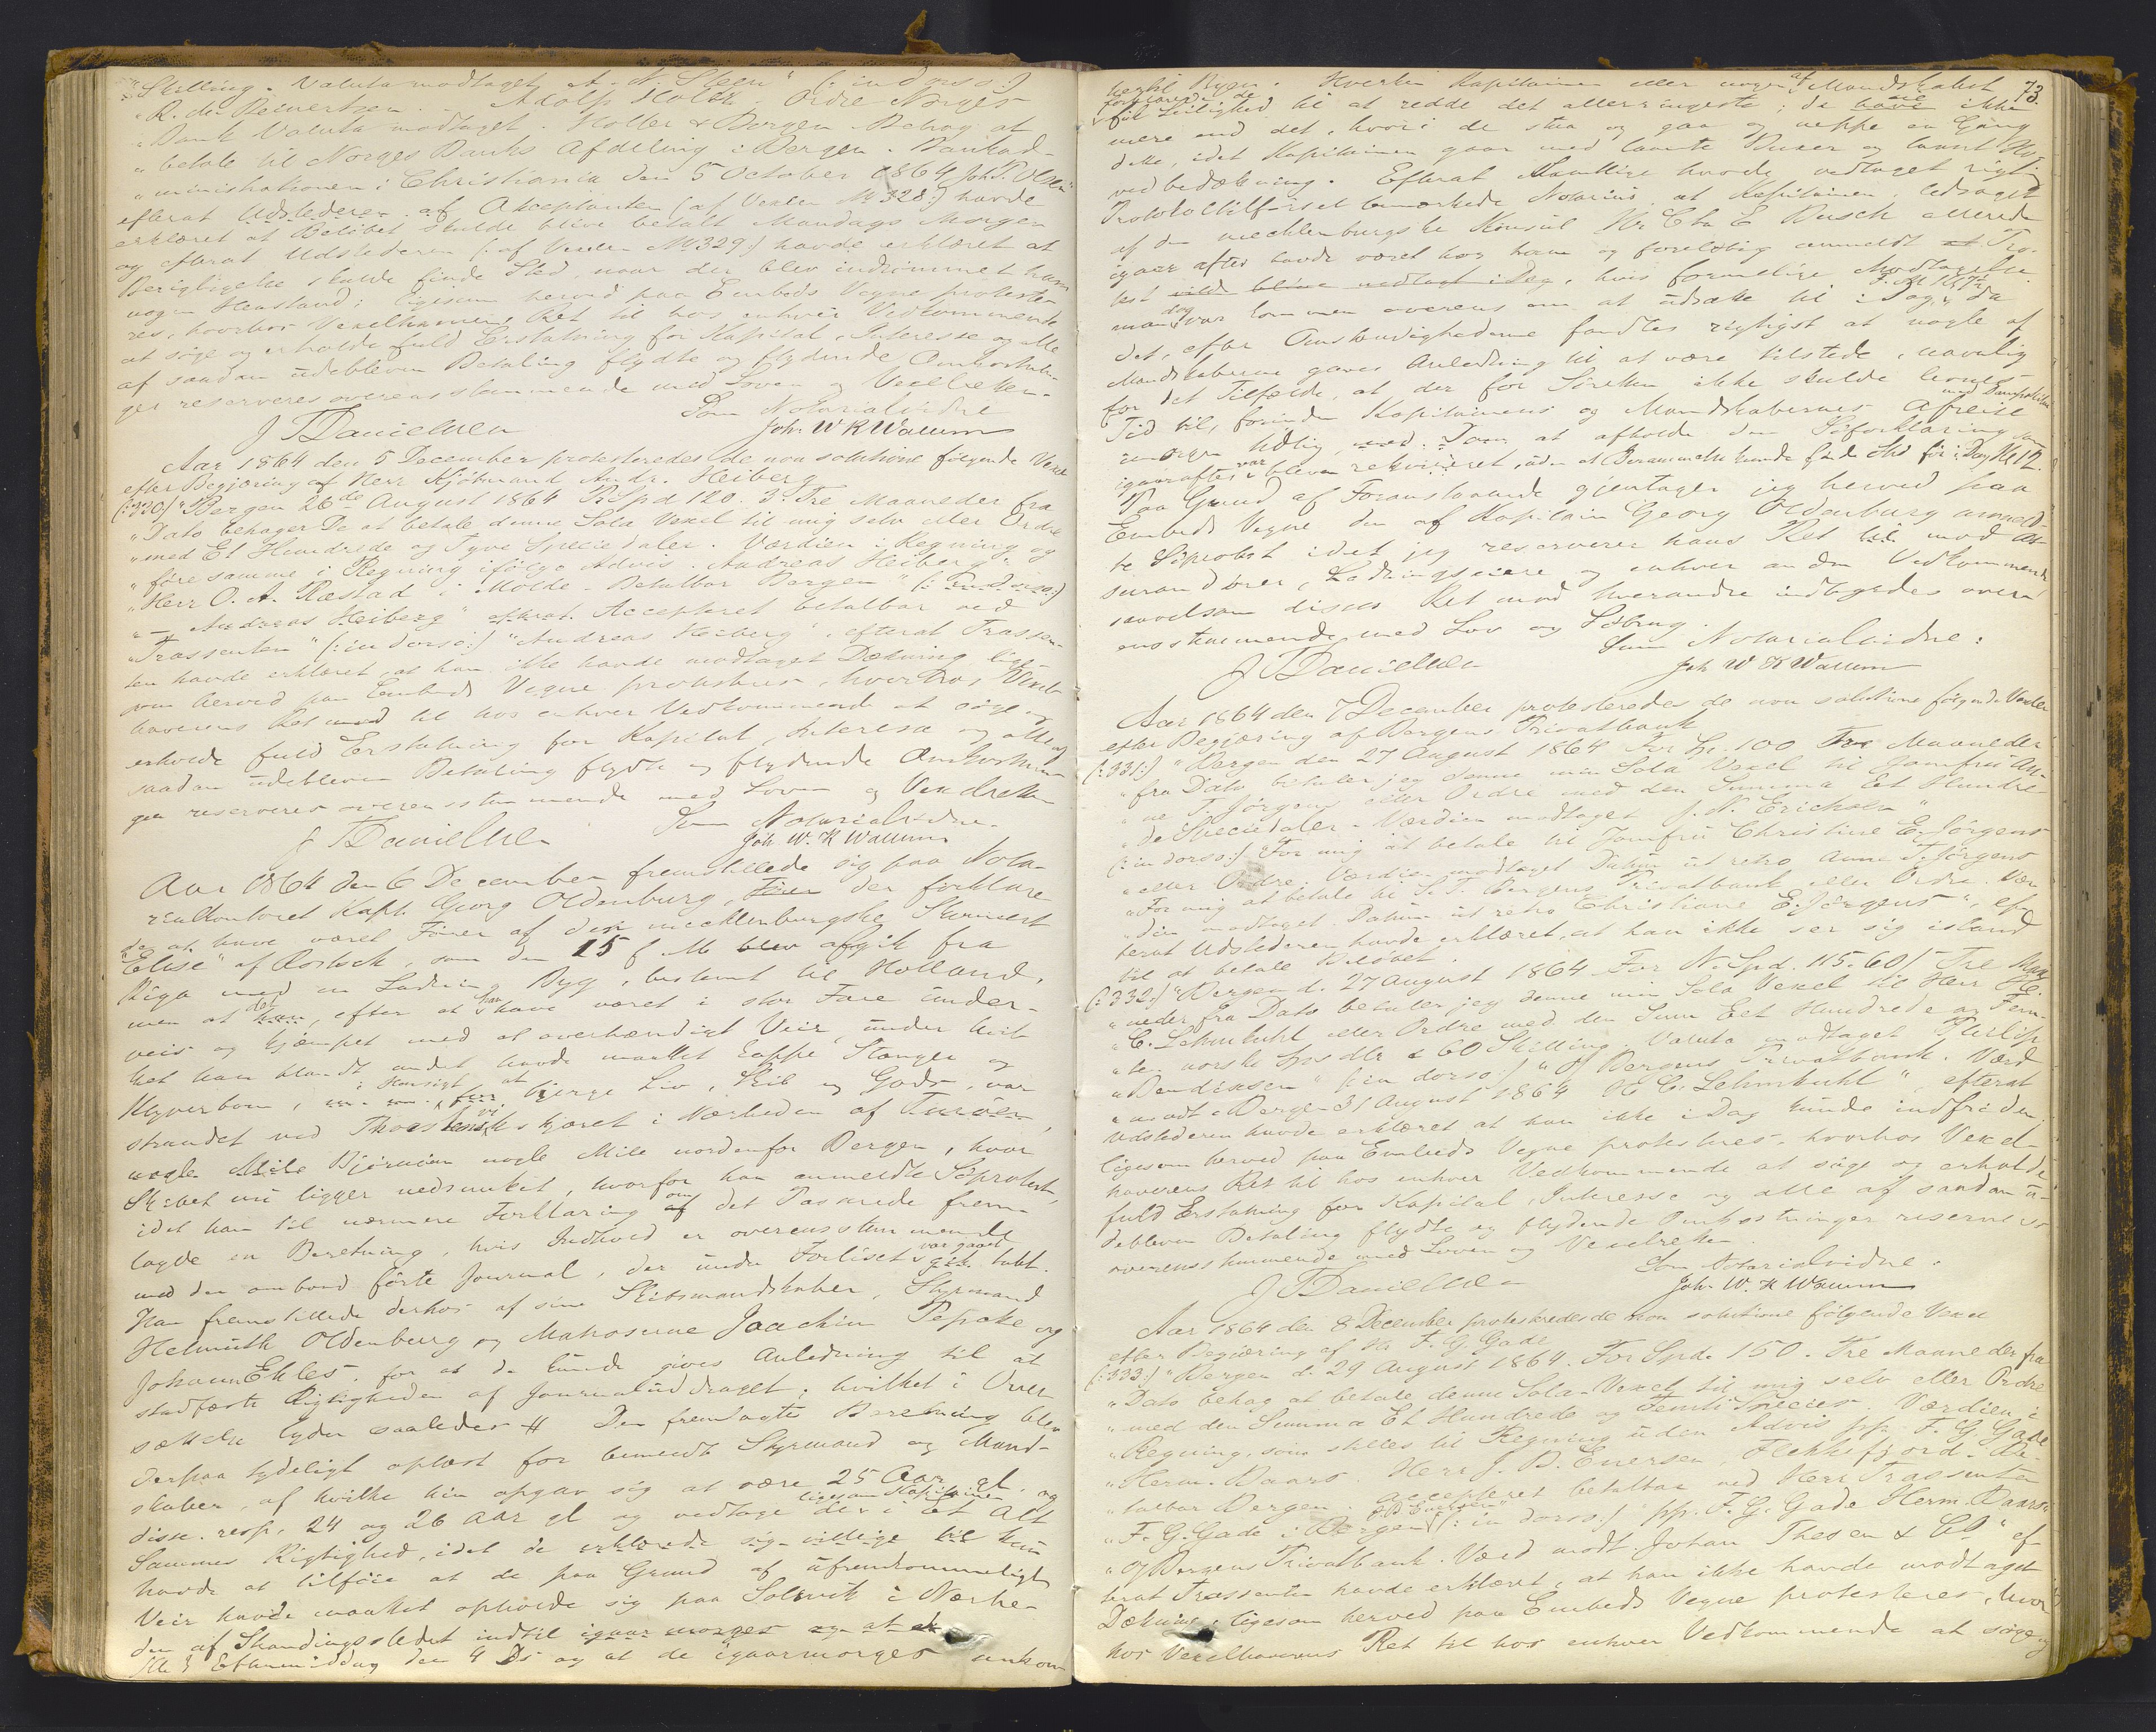 "Skilling. Valuta modtaget A. N. Steen" (: in dorso :)
"R. du Beuertsen Adolf Holtz. Ordre Norges
"Bank Valuta modtaget. Koller & Borgen Behag at
"betale til Norges Banks Afdeling i Bergen. Bankad-
"ministrationen i Christiania den 5 October 1864 Joh. P. Olsen"
efterat Udstederen af Acceptanten (af Vexlen No 328:) havde
erklæret at Beløbet skulde blive betalt Mandags Morgen
og efterat Udstederen (: af Vexlen No 329:) havde erklæret at
Berigtigelse skulde finde Sted naar der blev indrømmet ham
nogen Henstand; ligesom herved paa Embeds Vegne proteste-
res, hvorhos Vexelhaverens Ret til hos enhver Vedkommende
at søge og erholde fuld Erstatning for Kapital, Interesse og alle
af saadan udebleven Betaling flydte og flydende Omkostnin-
ger reserveres overensstemmende med Loven og Vexelretten.
Som Notarialvidne
J TDanielsen Joh. W K Wallem
Aar 1864 den 5 December protesteredes de non solutione følgende Vexel
efter Begjæring af Herr Kjøbmand Andr. Heiberg
(: 330) "Bergen 26de August 1864 R. Spd 120. 3. Tre Maaneder fra
"Dato behager De at betale denne Sola Vexel til mig selv eller Ordre
"med Et Hundrede og Tyve Speciedaler. Værdien i Regning og
"føre samme i Regning ifølge Advis. Andreas Heiberg.
"Herr O. A. Ræstad i Molde. Betalbar Bergen" (: in dorso :)
"— Andreas Heiberg" efterat. Accepteret betalbar ved
"Trassenten" (: in dorso :) "Andreas Heiberg", efterat Trassen-
ten havde erklæret, at han ikke havde modtaget Dækning lige-
som herved paa Embeds Vegne protesteres, hvorhos Vexel-
haverens Ret med til hos enhver Vedkommende at søge og
erholde fuld Erstatning for Kapital, Interesse og alle af
saadan udebleven Betaling flydte og flydende Omkostnin-
ger reserveres overensstemmende med Loven og Vexelretten
Som Notarialvidne.
J TDanielsen Joh W. K Wallem
Aar 1864 den 6 December fremstillede sig paa Nota-
rialkontoret Kapt. Georg Oldenburg, Fører der forklare-
de at have været Fører af den mecklenburgske Skonnert
"Elise" af Rostock, som den 15 f. M. blev afgik fra
Riga med en Ladning Byg, bestemt til Holland,
men at det han, efter at han have været i stor Fare under-
veis og kjæmpet med et overhændigt Veir, under hvil-
ket han blandt andet havde maattet kappe Stænger og
Klyverbom, i Hensigt at bjerge Liv, Skib og Gods, var
strandet ved Thorstensvigskjæret i Nærheden af Turøen,
nogle Mile Bjørnøen nogle Mile nordenfor Bergen, hvor
Skibet nu ligger nedsunket, hvorfor han anmeldte Søprotest,
idet han til nærmere Forklaring af om det Passerede frem-
lagde en Beretning, hvis Indhold er overensstemmende
med den ombord førte Journal, der under Forliset var gaaet gik tabt.
Han fremstillede derhos af sine Skibsmandskaber, Styrmand
Helmuth Oldenburg og Matroserne Joachim Pepoke og
Johann Ehles, for at de kunde gives Anledning til at
stadfæste Rigtigheden af Journaluddraget, hvilket i Over-
sættelse lyder saaledes # Den fremlagte Beretning blev
derpaa tydeligt oplæst for bemeldt Styrmand og Mand-
skaber, af hvilke hin opgav sig at være 25 Aar gl. og
disse resp. 24 og 26 Aar gl og vedtoge ligesom Kapitainen den i et og alt
Sammes Rigtighed, idet de erklærede sig villige til kun
havde at tilføie at de paa Grund af ufremkommeligt
Veir havde maattet opholde sig paa Solsvik i Nærhe-
den af Strandingsstedet indtil igaar morges og at de
Kl 3 Eftermiddag den 4 Ds og at de igaarmorges ankom
73.
hertil Byen. Hverken Kapitainen eller nogen af Mandskabet
fik Leilighed til at redde det allerringeste; de have ikke
mere end det, hvori de staa og gaa og neppe en Gang
dette, idet Kapitainen gaar med laante Buxer og laant Ho-
vedbedækning. Efterat Samtlige havde vedtaget rigtig
Protokoltilførsel bemærkede Notarius, at Kapitainen, ledsaget
af den mecklenburgske Konsul Hr. Chr. E Busch allerede
igaar aftes havde været hos ham og foreløbig anmeldt at Pro-
test vilde blive nedlagt i Dag, hvis formelige Modtagelse
man dog var kommen overens om at udsætte til i Dag F. M Kl 12, da
det, efter Omstændighederne fandtes rigtigst at nogle af
Mandskaberne gaves Anledning til at være tilstede, navnlig
for det Tilfælde, at der for Søretten ikke skulde levnes
Tid til, forinden Kapitainens og Mandskabernes Afreise med Dampskibet
imorgen tidlig, med Dem at afholde den Søforklaring som
igaaraftes var bleven rekvireret, uden at Berammelse kunde finde Sted før i Dag Kl 12.
Paa Grund af Foranstaaende gjentager jeg herved paa
Embeds Vegne den af Kapitain Georg Oldenburg anmeld-
te Søprotest idet jeg reserverer hans Ret til mod As-
surandører, Ladningseiere og enhver anden Vedkommende,
saavelsom disses Ret mod hverandre indbyrdes over-
ensstemmende med Lov og Søbrug.
Som Notarialvidne:
J TDanielsen Joh W K Wallem
Aar 1864 den 7 December protesteredes de non solutione følgende Vexler
efter Begjæring af Bergens Privatbank
(: 331 :) "Bergen den 27 August 1864 For Sp. 100 Tre Maaneder
"fra Dato betaler jeg denne min Sola Vexel til Jomfru An-
"ne T. Jørgens eller Ordre med den Summa Et Hundre-
"de Speciedaler. Værdien modtaget J. N. Erichsen"
(: in dorso :) "For mig at betale til Jomfru Christine E. Jørgens
"eller Ordre. Værdien modtaget Datum ut retro Anne T. Jørgens
"For mig at betale til S. T. Bergens Privatbank eller Ordre. Vær-
"dien modtaget. Datum ut retro Christiane E. Jørgens", ef-
terat Udstederen havde erklæret, at han ikke ser sig istand
til at betale Beløbet.
(: 332 :) "Bergen d. 27 August 1864 For N. Spd. 115. 60/ Tre Maa-
"neder fra Dato betaler jeg denne min Sola Vexel til Herr H.
"C. Lehmkuhl eller Ordre med den Sum Eet Hundrede og Fem-
"ten norske Species dlr & 60 Skilling. Valuta modtaget Phillip
"Bendixsen" (: in dorso :) "Of Bergens Privatbank. Værd
"modt. Bergen 31 August 1864 H C. Lehmkuhl" efterat
Udstederen havde erklæret at han ikke i Dag kunde indfri den,
ligesom herved paa Embeds Vegne protesteres, hvorhos Vexel-
haverens Ret til hos enhver Vedkommende at søge og erholde
fuld Erstatning for Kapital, Interesse og alle af saadan u-
debleven Betaling flydte og flydende Omkostninger reserveres
overensstemmende med Loven og Vexelretten.
Som Notarialvidne.
J TDanielsen Joh W. K Wallem
Aar 1864 den 8 December protesteredes de non solutione følgende Vexel
efter Begjæring af Hr F. G. Gade
(: 333 :) "Bergen d. 29 August 1864. For Spd. 150. Tre Maaneder fra
"Dato behag at betale denne Sola-Vexel til mig selv eller Ordre
"med den Summa Et Hundrede og Femti Species. Værdien i
"Regning, som stilles til Regning uden Advis pp. F. G. Gade
"Herm. Daars. Herr J. B. Enersen, Flekkefjord. Be-
"talbar Bergen. accepteret betalbar ved Herr Trassenten
"F. G. Gade i Bergen J B Enersen" (: in dorso :) "pp. F. G. Gade Herm. Daars.
"Of Bergens Privatbank. Værd modt. Johan Thesen & Co" ef-
terat Trassenten havde erklæret, at han ikke havde modtaget
Dækning; ligesom herved paa Embeds Vegne protesteres, hvor-
hos Vexelhaverens Ret til hos enhver Vedkommende at søge og